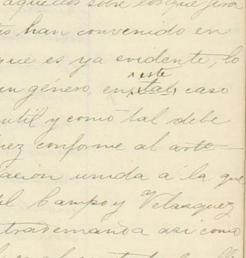 aquellos sobre los que gira
han convenido en
que es ya evidente, lo
un género, en este caso
util y como tal debe
ez conforme al arte
ación unida á la que
el Campo y Velasquez
tra demanda asi como